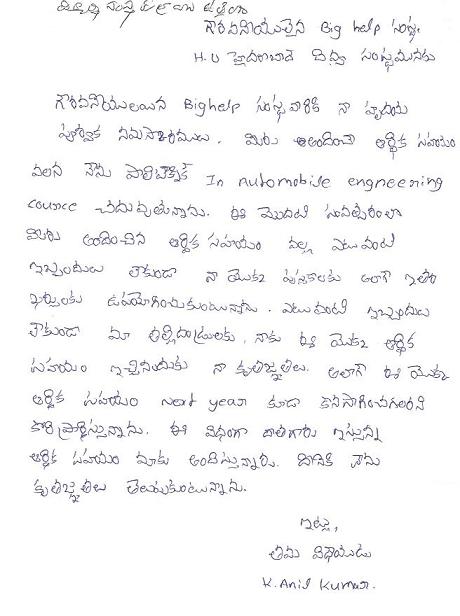 గౌరవనీయులైన Big help సంస్థ.
H.O హైదరాబాద్ దివ్య సంస్థమునకు
గౌరవనీయులయిన Bighelp సంస్థ వారికి నా హృదయ
పూర్వక నమస్కారములు. మీరు అందించే ఆర్థిక సహాయం
వలన నేను పాలిటెక్నిక్ In Automobile engneering
counce చదువుతున్నాను. ఈ మొదటి సంవత్సరంలో
మీరు అందించిన ఆర్థిక సహాయం వల్ల ఎటువంటి
ఇబ్బందులు లేకుండా నా యొక్క పుస్తకాలకు అలాగే ఇతర
ఖర్చులకు ఉపయోగించుకుంటున్నాను. ఎటువంటి ఇబ్బందులు
లేకుండా మా తల్లిదండ్రులకు, నాకు ఈ యొక్క ఆర్థిక
సహాయం ఇచ్చినందుకు నా కృతజ్ఞతలు. అలాగే ఈ యొక్క
ఆర్థిక సహాయం next year కూడా కొనసాగించగలరని
కోరి ప్రార్థిస్తున్నాను. ఈ విధంగా దాతగారు ఇస్తున్న
ఆర్థిక సహాయం మాకు అందిస్తున్నారు. దానికి నేను
కృతజ్ఞతలు తెలుపుకుంటున్నాను.
ఇట్లు,
తమ విధేయుడు
K.Anil Kumar.